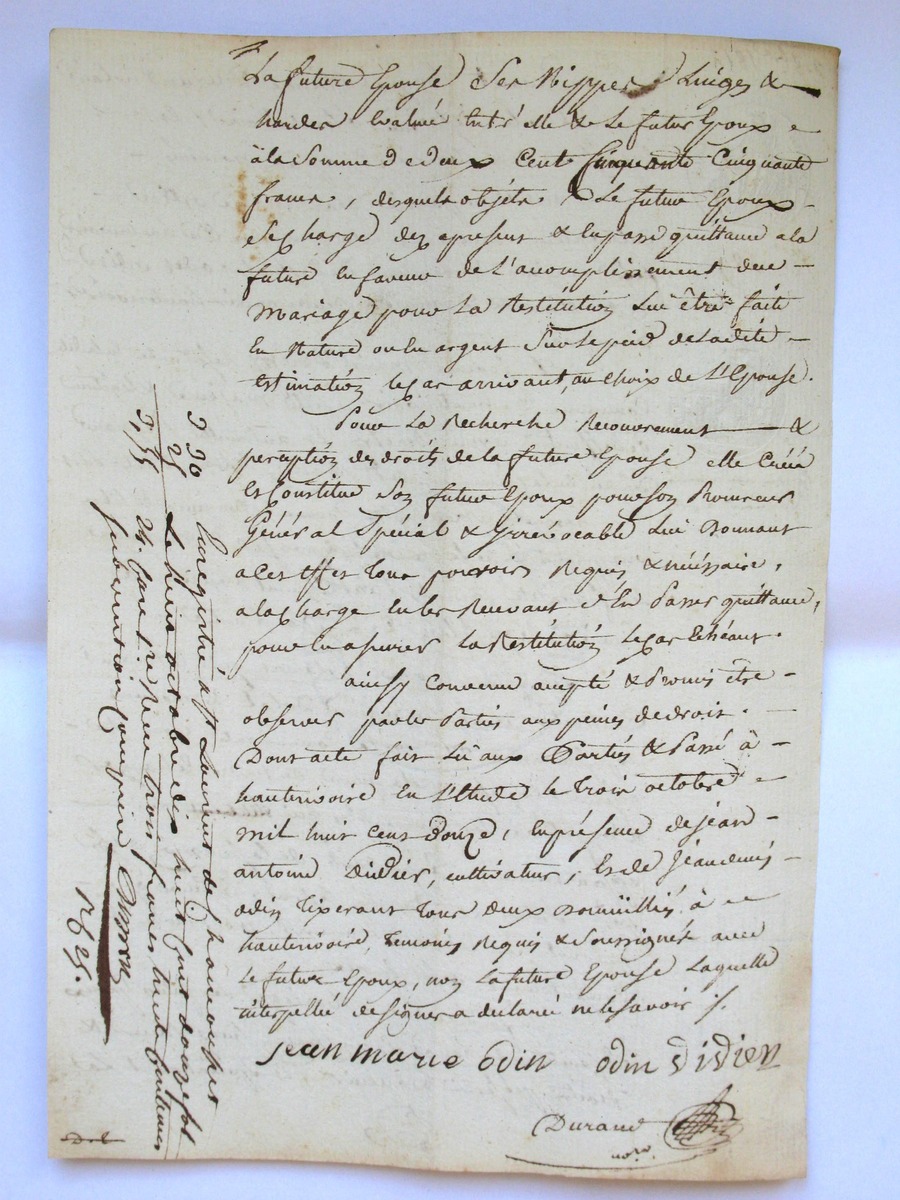 La future Epouse Ses Nippes Linges &
hardes Evalué Entr'elle & Le futur Epoux
à la Somme de deux Cent Cinquante
francs, desquels objets Le futur Epoux
Se Charge dez apresent & En passe quittance a la
future En faveur de l'acomplissement de ce
Mariage pour La Restitution Lui être faite
En Nature ou En argent Sur le pied de ladite
Estimation le cas arrivant, au choix de L'Epouse.
Pour La Recherche Recouvrement &
perception des droits de la future Epouse elle Créé
Et Constitue Son futur Epoux pour Son Procureur
Général Spécial & Irrévocable Lui Donnant
a Ces Effets Tous pouvoirs Requis & nécéssaire,
a la Charge En les Recevant d'En Passer quittance,
pour En assurer La Restitution le cas Echéant.
ainsy Convenu accepté & Promis être
observer par les Parties aux peines de droit.
Dont acte fait Lu aux Parties & Passé à
hauterivoire En L'Etude le Trois octobre
mil huit Cent Douze, En présence de jean
antoine Didier, cultivateur, Et de Jean
odin Tixerant Tous deux Domiciliés à
hauterivoire, Temoins Requis & Soussignés avec
Le futur Epoux, non La future Epouse Laquelle
interpellé de signer a déclaré ne le savoir /.
jean marie odin odin didier
Durand
nore
Enregistré a St Laurent de Chamousset
Le huit octobre dix huit Cent douze fol
24. Case Reçu trois francs trente centimes
Subvention Comprise
3 30
25
3,55